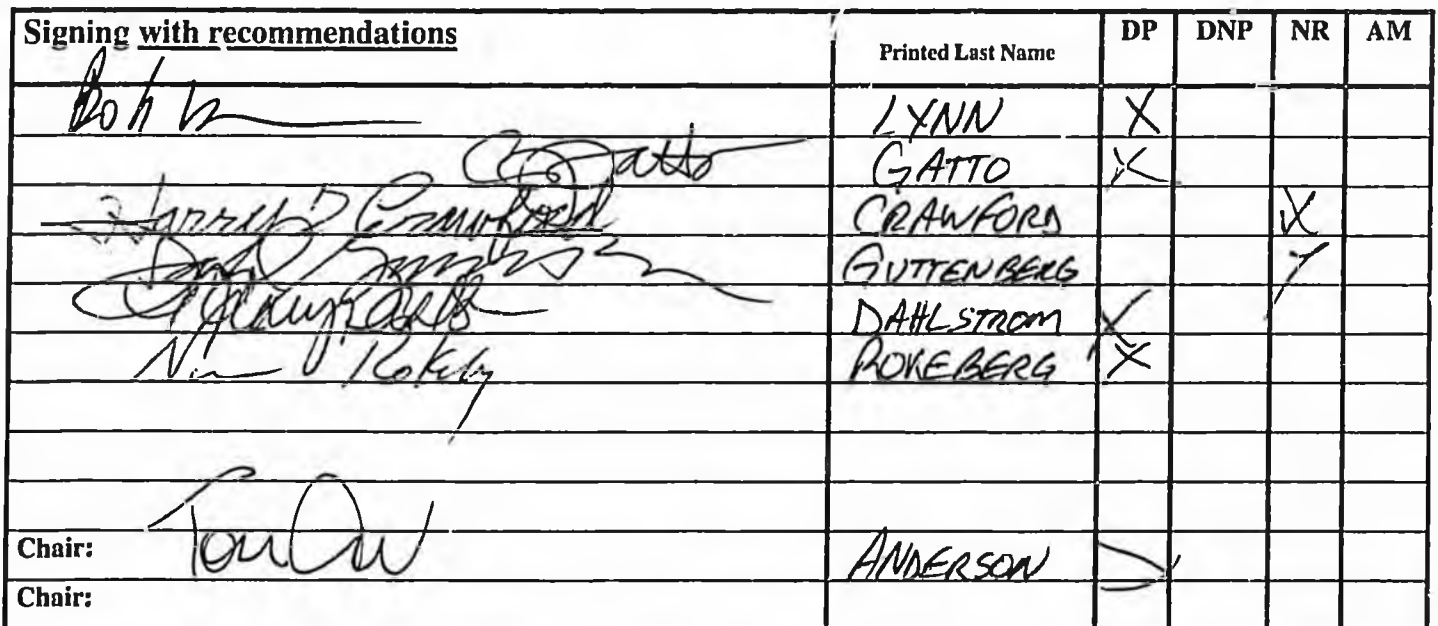 Signing with recommendations Printed Last Name DP DNP NR AM
Bob Lynn LYNN X
Gatto GATTO X
Harry Crawford CRAWFORD X
GUTTENBERG
DAHLSTROM X
ROKEBERG X
Chair: Tom ANDERSON
Chair: